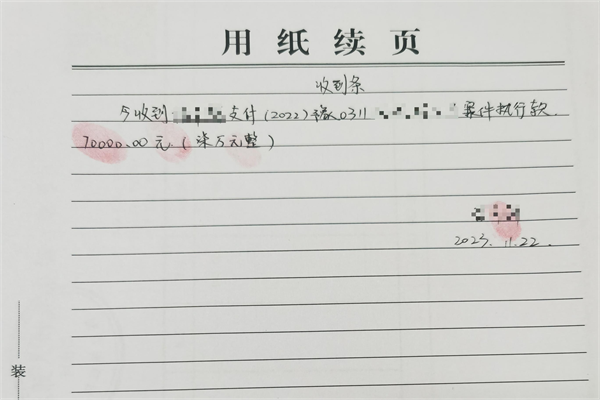 用纸续页
收到条
今收到 支付(2022)豫0311 案件执行款
70000.00元(柒万元整)
2023.11.22.
装